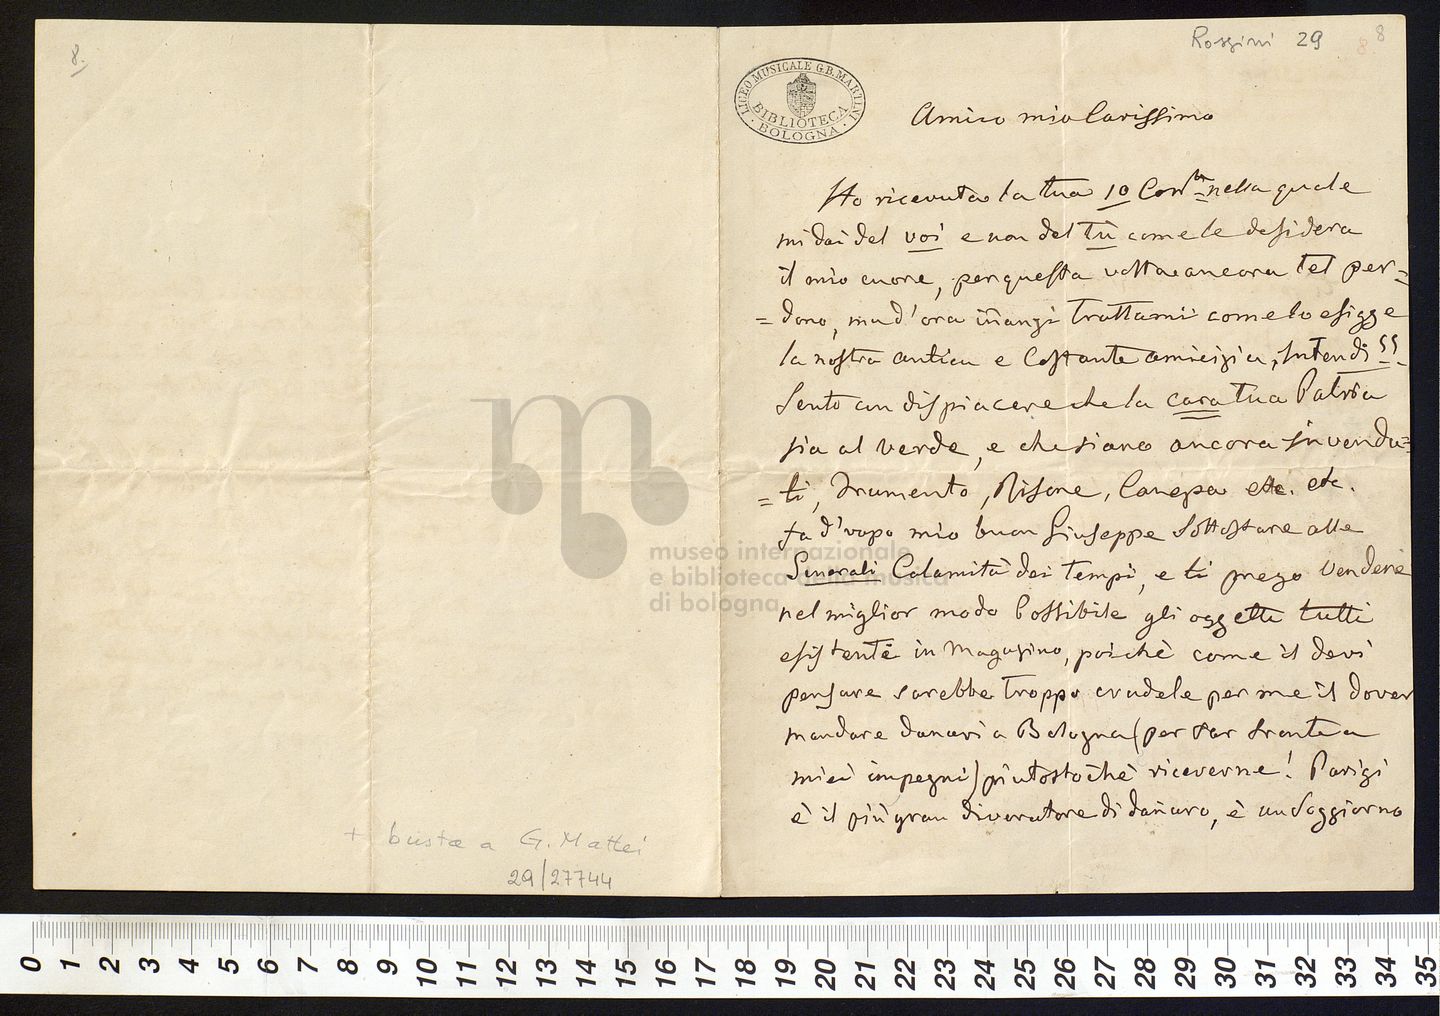 8.
Rossini 29 8 8
LICEO MUSICALE G.B. MARTINI
BIBLIOTECA
BOLOGNA
Amico mio Carissimo
Ho ricevuta la tua 10 Corr.te nella quale
mi dai del voi e non del tù come le desidera
il mio cuore, per questa volta ancora tel per=
=dono, ma d'ora iñanzi trattami come lo esigge
la nostra antica e Costante amicizia, Intendi
Sento con dispiacere che la cara tua Patria
sia al verde, e che siano ancora invendu=
=ti, Frumento, Risone, Canepa etc. etc.
fa d'uopo mio buon Giuseppe Sottostare alle
Generali Calamità dei tempi, e ti prego Vendere
nel miglior modo Possibile gli oggetti tutti
esistenti in Magazino, poichè come il devi
pensare sarebbe troppo crudele per me il dover
mandare danari a Bologna (per far fronte a
miei impegni) piutostochè riceverne! Parigi
è il più gran divoratore di danaro, è un Soggiorno
+ busta a G. Mattei
29/27744
museo internazionale
e biblioteca della musica
di bologna
0 1 2 3 4 5 6 7 8 9 10 11 12 13 14 15 16 17 18 19 20 21 22 23 24 25 26 27 28 29 30 31 32 33 34 35